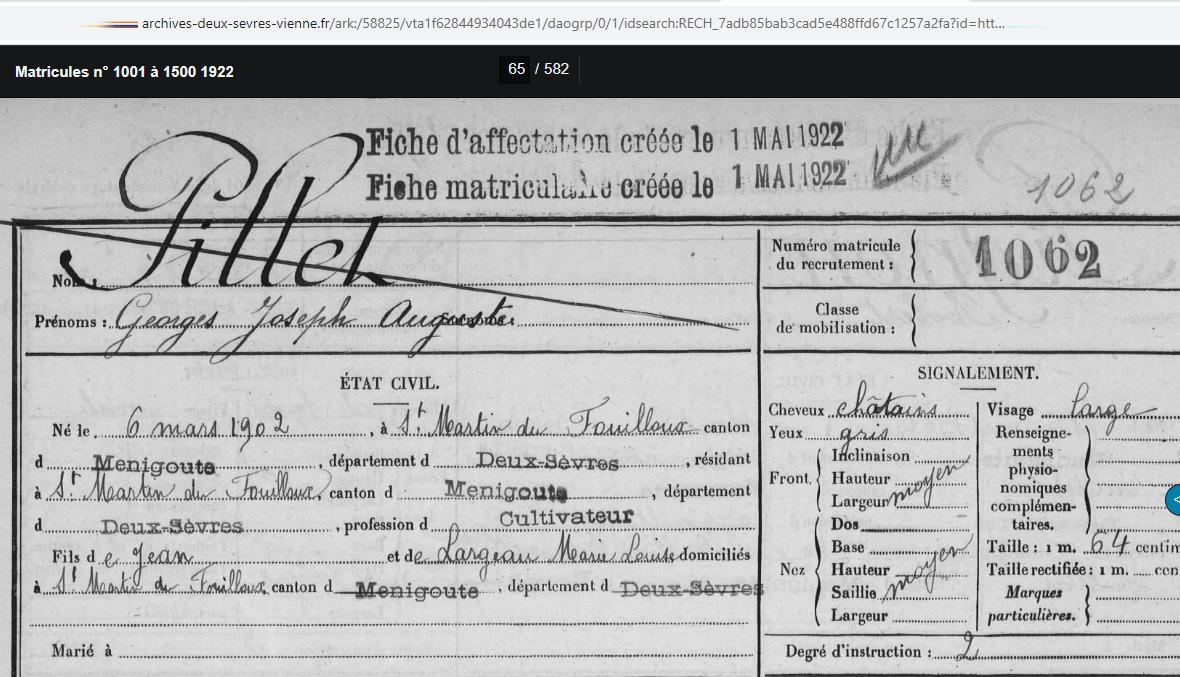 archives-deux-sevres-vienne.fr/ark:/58825/vta1f62844934043de1/daogrp/0/1/idsearch:RECH_7adb85bab3cad5e488ffd67c1257a2fa?id=htt...
Matricules n° 1001 à 1500 1922
65 / 582
Fiche d'affectation créée le 1 MAI 1922
Fiche matriculaire créée le 1 MAI 1922
1062
Nom : Pillet
Prénoms : Georges Joseph Auguste Surnoms :
ÉTAT CIVIL.
Né le 6 mars 1902, à St Martin du Fouilloux canton
d Menigoute, département d Deux-Sèvres, résidant
à St Martin du Fouilloux, canton d Menigoute, département
d Deux-Sèvres, profession d Cultivateur
Fils de Jean et de Largeau Marie Louise domiciliés
à St Martin du Fouilloux canton d Menigoute, département d Deux-Sèvres
Marié à
Numéro matricule
du recrutement : 1062
Classe
de mobilisation :
SIGNALEMENT.
Cheveux châtains
Yeux gris
Front.
Inclinaison
Hauteur
Largeur moyen
Nez
Dos
Base
Hauteur
Saillie moyen
Largeur
Visage large
Renseigne-
ments
physio-
nomiques
complémen-
taires.
Taille : 1 m. 64 centim
Taille rectifiée : 1 m. cen
Marques
particulières.
Degré d'instruction : 2